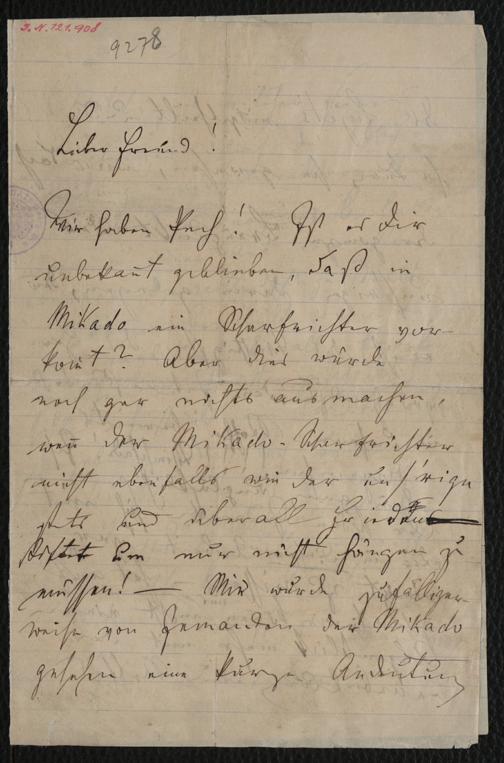 I. N. 121.908
9278
Lieber Freund!
Wir haben Pech! Ist es Dir
unbekañt geblieben, daß in
Mikado ein Scharfrichter vor-
kom̄t? Aber dies würde
noch gar nichts ausmachen,
weñ der Mikado-Scharfrichter
nicht ebenfalls wie der uns'rige
stets und überall Frieden
stiftet um nur nicht hängen zu
müssen! — Mir wurde zufälliger-
weise von Jemanden der Mikado
gesehen eine kurze Andeutung